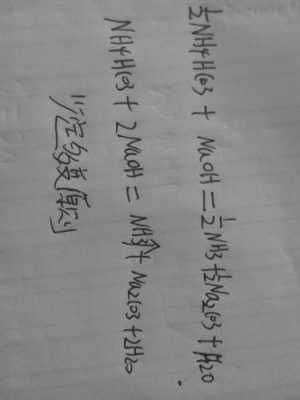 ½NH4HCO3 + NaOH = ½NH3 + ½Na2CO3 + H2O
NH4HCO3 + 2NaOH = NH3↑ + Na2CO3 + 2H2O
定多变原则